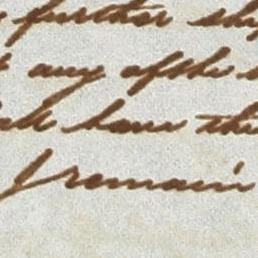 further
any of the
have the
I remain